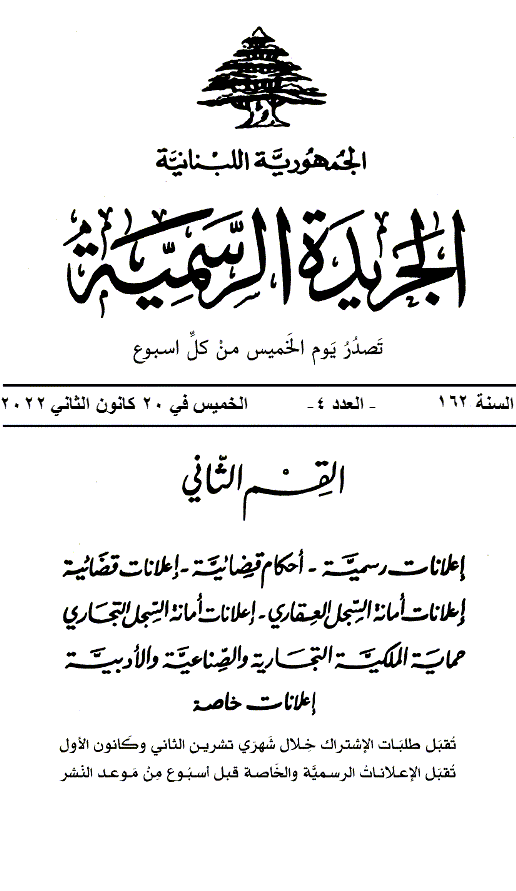 الجُمهُوريَّة اللبْنانيَّة
الجَريدَة الرَّسمِيَّة
تَصدُرُ يَوم الخَميس منْ كلِّ اسبوع
السنة ١٦٢ - العدد ٤ - الخميس في ٢٠ كانون الثاني ٢٠٢٢
القِسْم الثّاني
إعلانات رسميَّة - أحكام قضائيَّة - إعلانات قضائية
إعلانات أمانة السِّجل العِقاري - إعلانات أمانة السِّجل التِّجاري
حماية الملكيَّة التجارية والصِّناعيَّة والأدبيَّة
إعلانات خاصة
تُقبَل طلبَات الإشتراك خِلال شَهرَي تشرين الثاني وكَانون الأول
تُقبَل الإعلاناتُ الرسميَّة والخَاصة قبل أسبُوع مِنْ مَوعد النَشر